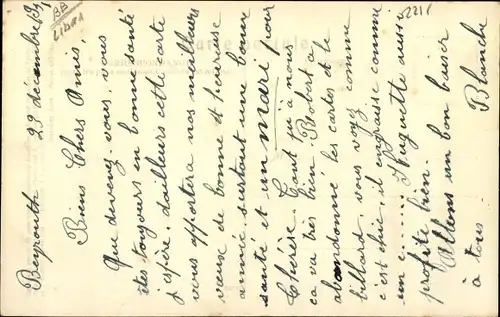 BB
LIBEA
2211
Beyrouth 23 decembre 37
Biens Chers Amis,
Que devenez-vous, vous
êtes toujours en bonne santé
j'espère, d'ailleurs cette carte
vous apportera nos meilleurs
vœux de bonne et heureuse
année surtout une bonne
santé et un mari pour
Thérèse. Tant qu'à nous
ca va très bien. Robert a
abandonné les cartes et le
billard, vous voyez comme
c'est chic, il engraisse comme
un c...... Huguette aussi
profite bien.
Allons un bon baiser
à tous.
Blanche